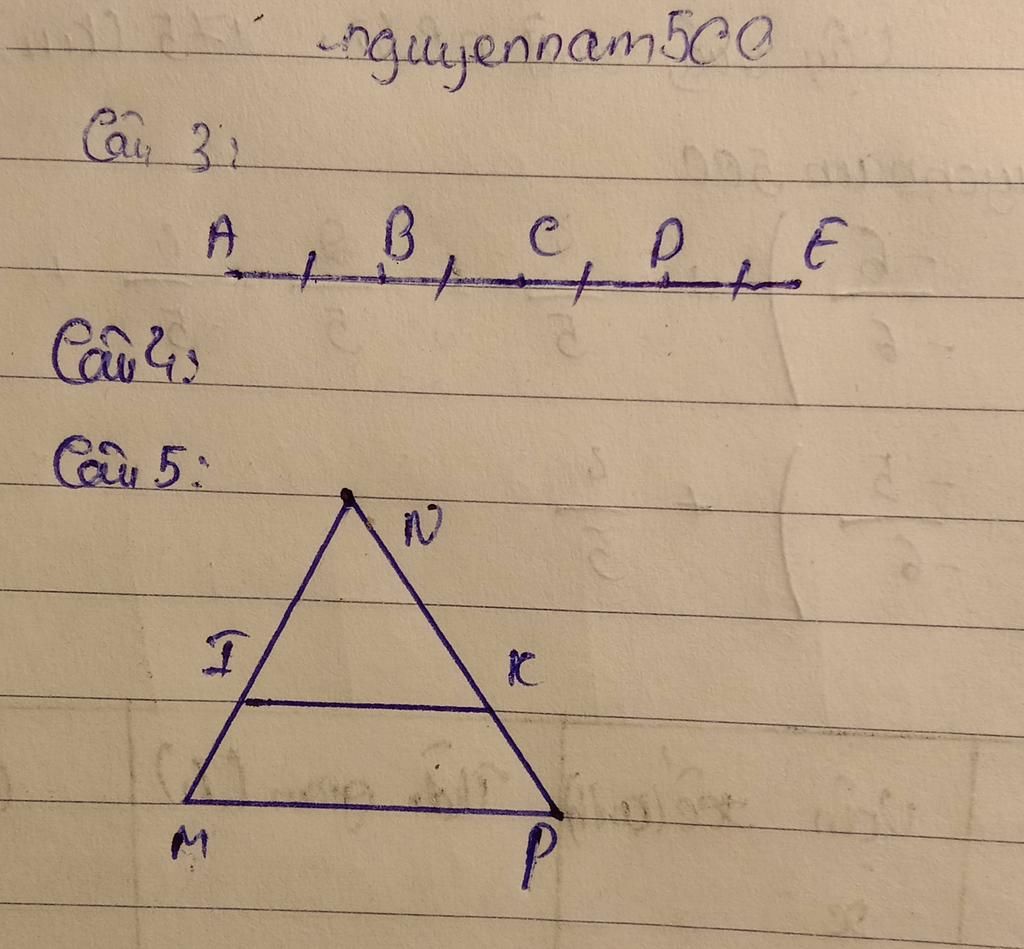 nguyennam500
Câu 3:
A B C D E
Câu 4:
Câu 5:
N
I K
M P